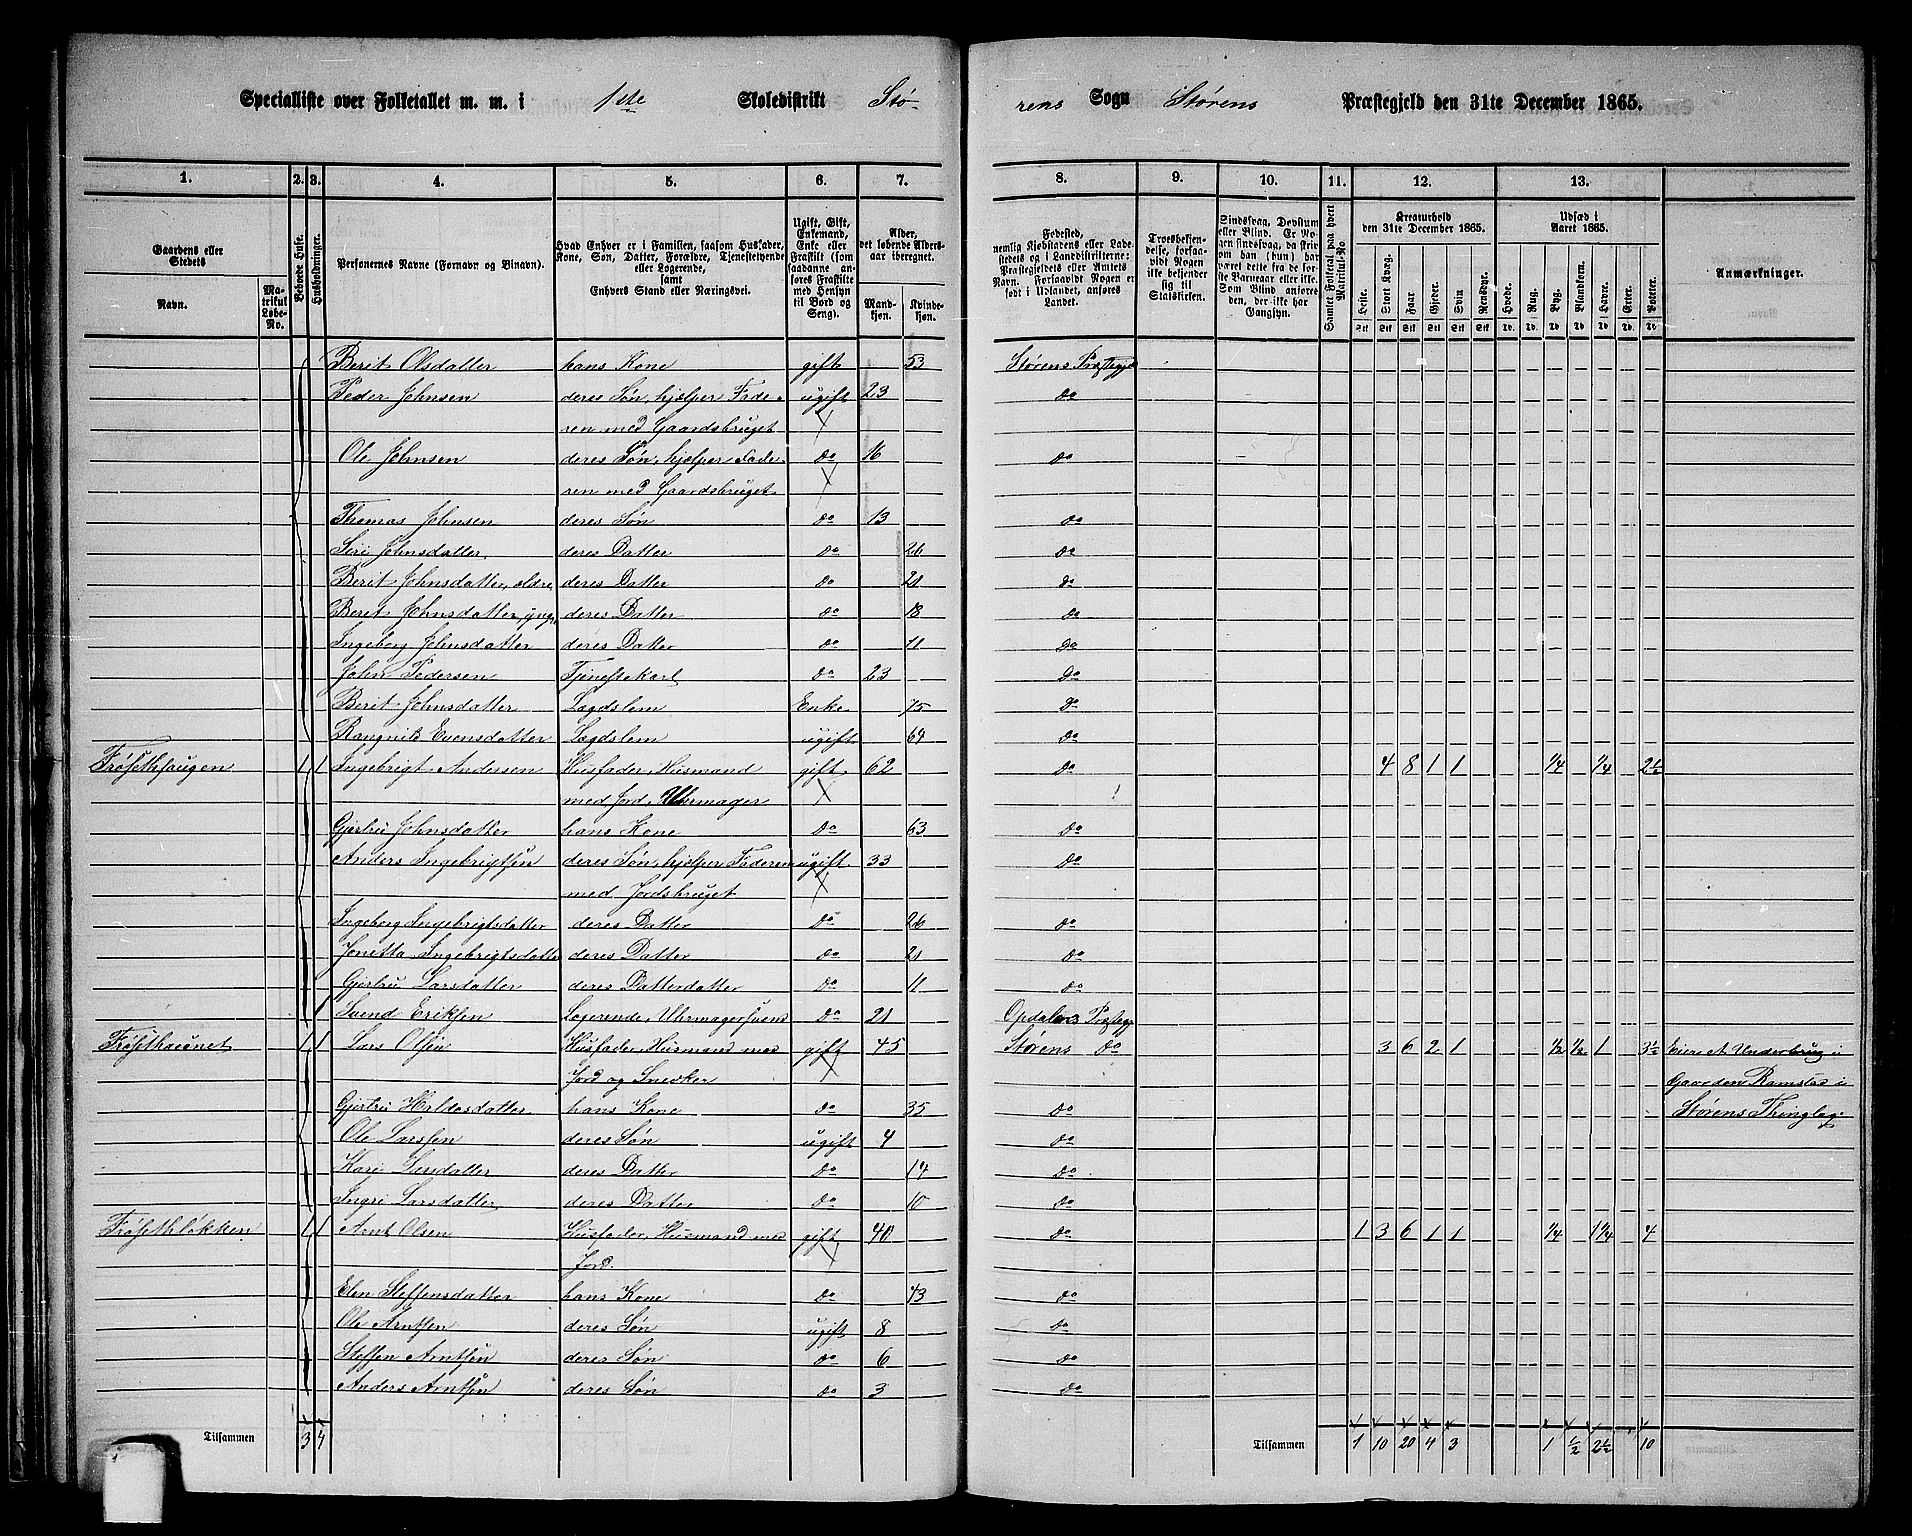 Specialliste over Folketallet m. m. i 1ste Skoledistrikt Stø-
rens Sogn Størens Præstegjeld den 31te December 1865.
1. 2. 3. 4. 5. 6. 7. 8. 9. 10. 11. 12. 13.
Gaardens eller Stedets
Navn.
Matrikul Løbe-No.
Beboede Huse.
Husholdninger.
Personernes Navne (Fornavn og Binavn).
Hvad Enhver er i Familien, saasom Husfader, Kone, Søn, Datter, Forældre, Tjenestetyende eller Logerende, samt Enhvers Stand eller Næringsvei.
Ugift, Gift, Enkemand, Enke eller Fraskilt (som saadanne anføres Fraskilte med Hensyn til Bord og Seng).
Alder, det løbende Aldersaar iberegnet.
Mandkjøn.
Kvindekjøn.
Fødested, nemlig Kjøbstadens eller Ladestedets og i Landdistrikterne: Præstegjeldets eller Amtets Navn. Forsaavidt Nogen er født i Udlandet, anføres Landet.
Troesbekjendelse, forsaavidt Nogen ikke bekjender sig til Statskirken.
Sindssvag, Døvstum eller Blind. Er Nogen sindssvag, da skrives om han (hun) har været dette fra de første Barneaar eller ikke. Som Blind anføres den, der ikke har Gangsyn.
Samlet Folketal paa hvert Matrikul-No.
Kreaturhold den 31te December 1865.
Heste. Stort Kvæg. Faar. Gjeder. Svin. Rensdyr.
Udsæd i Aaret 1865.
Hvede. Rug. Byg. Blandkorn. Havre. Erter. Poteter.
Anmærkninger.
Berit Olsdatter hans Kone gift 53 Størens Præstegjd
Peder Johnsen deres Søn, hjelper Fade- ugift 23 do
ren med Gaardsbruget
Ole Johnsen deres Søn, hjelper Fade- do 16 do
ren med Gaardsbruget.
Thomas Johnsen deres Søn do 13 do
Siri Johnsdatter deres Datter do 26 do
Berit Johnsdatter, ældre deres Datter do 21 do
Berit Johnsdatter, yngr. deres Datter do 18 do
Ingeborg Johnsdatter deres Datter do 11 do
John Pedersen Tjenestekarl do 23 do
Berit Johnsdatter Lagdslem Enke 75 do
Rangnild Evensdatter Lagdslem ugift 64 do
Frøsethhaugen 1 1 Ingebrigt Andersen Husfader, Husmand gift 62 do 4 8 1 1 1/4 1/4 2 1/2
med Jord, Uhrmager
Gjertru Johnsdatter hans Kone do 63 do
Anders Ingebrigtsen deres Søn, hjelper Faderen ugift 33 do
med Jordsbruget
Ingeborg Ingebrigtsdatter deres Datter do 26 do
Jonetta Ingebrigtsdatter deres Datter do 21 do
Gjertru Larsdatter deres Datterdatter do 11 do
1 Svend Eriksen Logerende, Uhrmagersvend do 21 Opdalens Præsteg
Frøsethaunet 1 1 Lars Olsen Husfader, Husmand med gift 45 Størens do 3 6 2 1 1/2 1/2 1 3 1/2 Eier et Underbrug i
Jord og Snedker Gaarden Ramstad i
Gjertru Haldosdatter hans Kone do 35 do Størens Thinglag.
Ole Larssen deres Søn ugift 4 do
Kari Larsdatter deres Datter do 14 do
Ingri Larsdatter deres Datter do 10 do
Frøsethløkken 1 1 Arnt Olsen Husfader, Husmand med gift 40 do 1 3 6 1 1 1/4 1 1/4 4
Jord.
Elen Steffensdatter hans Kone do 43 do
Ole Arntsen deres Søn ugift 8 do
Steffen Arntsen deres Søn do 6 do
Anders Arntsen deres Søn do 3 do
Tilsammen 3 4 Tilsammen 1 10 20 4 3 1 1/2 2 1/2 10